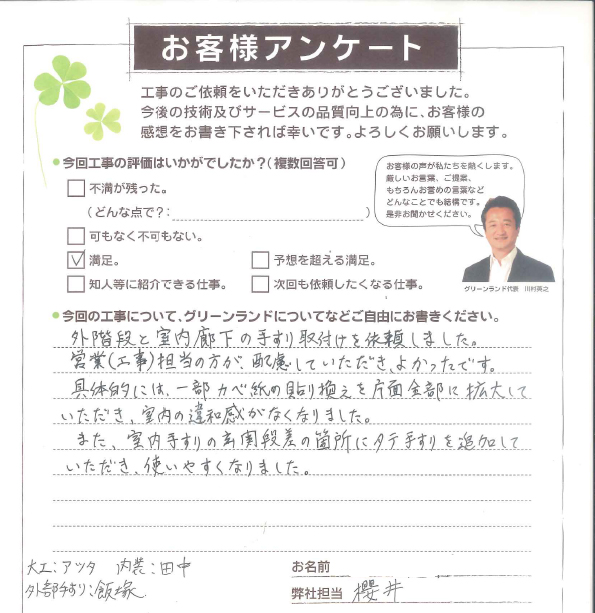 お客様アンケート
工事のご依頼をいただきありがとうございました。
今後の技術及びサービスの品質向上の為に、お客様の
感想をお書き下されば幸いです。よろしくお願いします。
●今回工事の評価はいかがでしたか?(複数回答可)
不満が残った。
(どんな点で?: )
可もなく不可もない。
満足。
予想を超える満足。
知人等に紹介できる仕事。
次回も依頼したくなる仕事。
お客様の声が私たちを熱くします。
厳しいお言葉、ご提案、
もちろんお誉めの言葉など
どんなことでも結構です。
是非お聞かせください。
グリーンランド代表 川村英之
●今回の工事について、グリーンランドについてなどご自由にお書きください。
外階段と室内廊下の手すり取付けを依頼しました。
営業(工事)担当の方が、配慮していただき、よかったです。
具体的には、一部カベ紙の貼り換えを片面全部に拡大して
いただき、室内の違和感がなくなりました。
また、室内手すりの玄関段差の箇所にタテ手すりを追加して
いただき、使いやすくなりました。
大工:アツタ 内装:田中
外部手すり:飯塚
お名前
弊社担当 櫻井